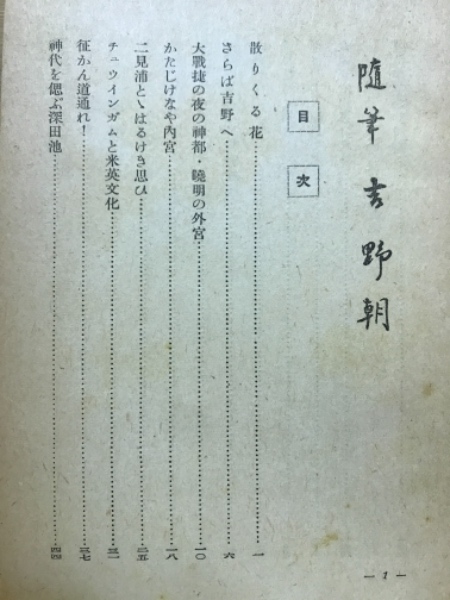 隨筆吉野朝
目次
散りくる花……一
さらば吉野へ……六
大戰捷の夜の神都・曉明の外宮……一〇
かたじけなや內宮……一八
二見浦とはるけき思ひ……二五
チュウインガムと米英文化……三一
征かん道通れ！……三七
神代を偲ぶ深田池……四四
— 1 —